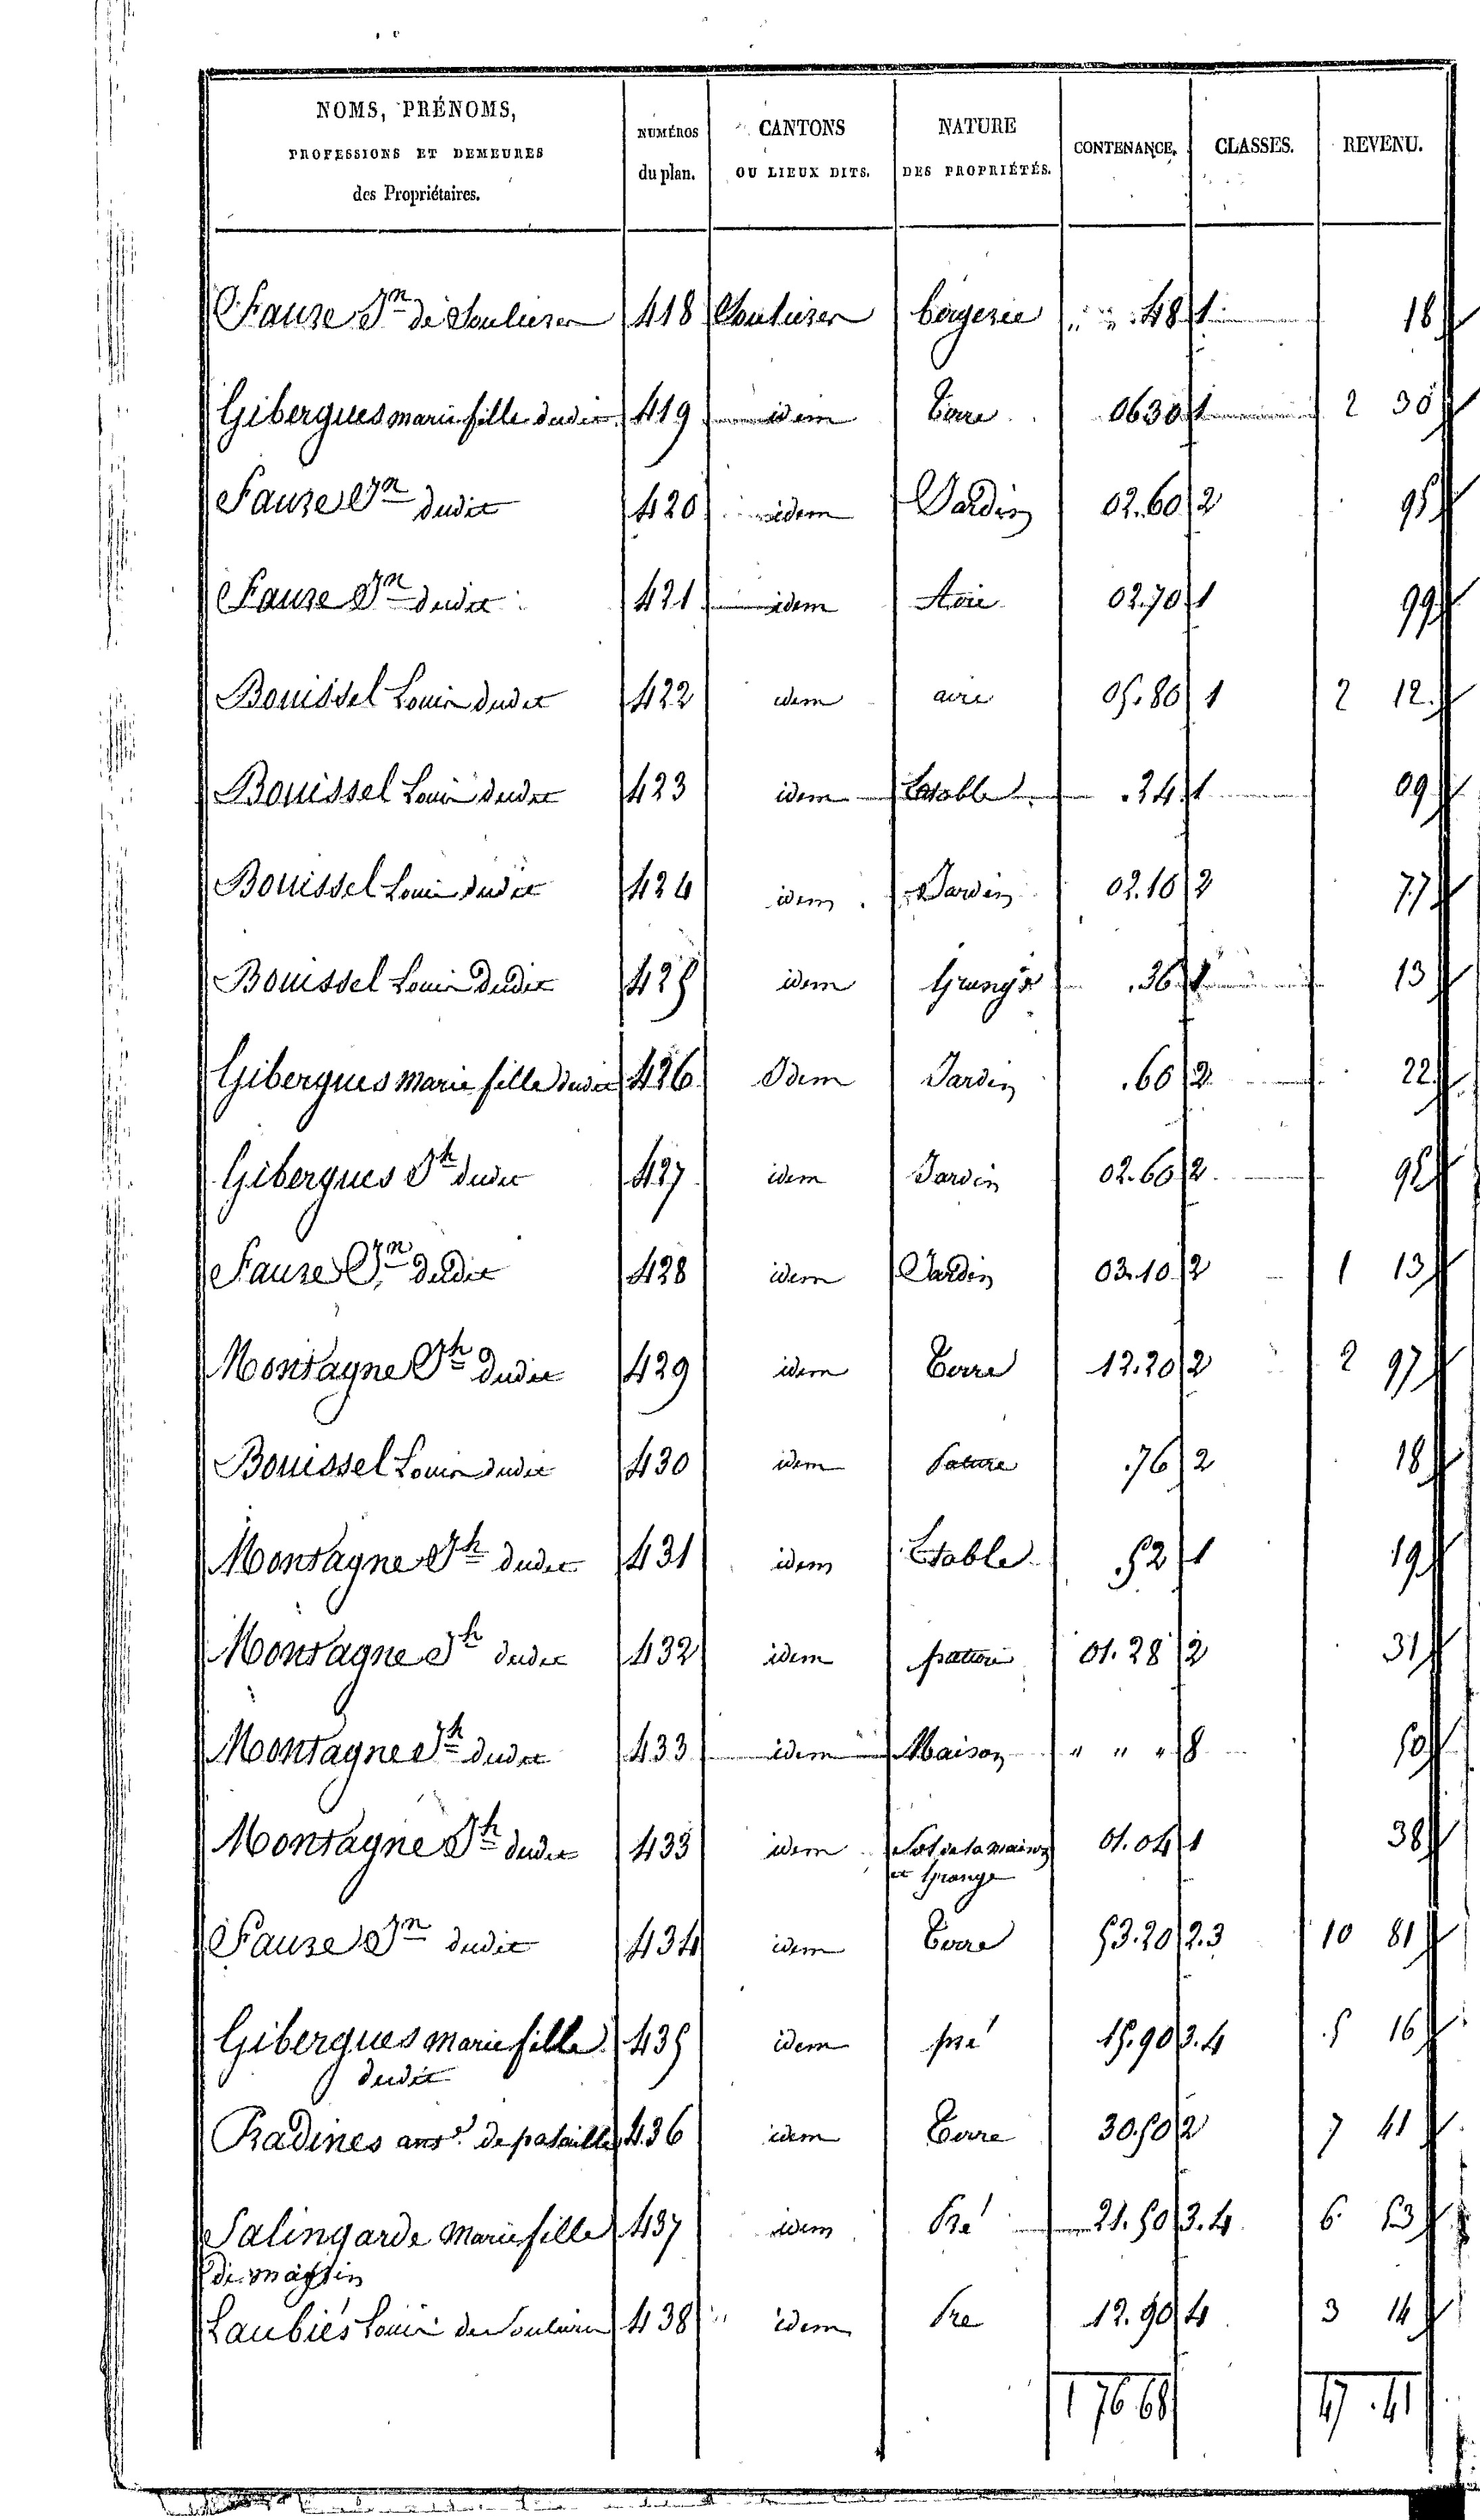 NOMS, PRÉNOMS, PROFESSIONS ET DEMEURES des Propriétaires. NUMÉROS du plan. CANTONS OU LIEUX DITS. NATURE DES PROPRIÉTÉS. CONTENANCE. CLASSES. REVENU.
Fauze Jn de Soulieren 418 Soulieren bergerie " " 48 1 18
Gibergues marie fille dudit 419 idem Terre 06 30 1 2 30
Fauze Jn dudit 420 idem Jardin 02.60 2 95
Fauze Jn dudit 421 idem Aire 02.70 1 99
Bouissel Louis dudit 422 idem aire 05.80 1 2 12
Bouissel Louis dudit 423 idem Etable .24 1 09
Bouissel Louis dudit 424 idem Jardin 02.10 2 77
Bouissel Louis dudit 425 idem Grange .36 1 13
Gibergues Marie fille dudit 426 Idem Jardin .60 2 22
Gibergues Jh dudit 427 idem Jardin 02.60 2 95
Fauze Jn dudit 428 idem Jardin 03.10 2 1 13
Montagne Jh dudit 429 idem Terre 12.20 2 2 97
Bouissel Louis dudit 430 idem Pature .76 2 18
Montagne Jh dudit 431 idem Etable .52 1 19
Montagne Jh dudit 432 idem pature 01.28 2 31
Montagne Jh dudit 433 idem Maison " " " 8 50
Montagne Jh dudit 433 idem Sol de la maison 01.04 1 38
et Grange
Fauze Jn dudit 434 idem Terre 53.20 2.3 10 81
Gibergues marie fille 435 idem pré 15.90 3.4 5 16
dudit
Radines 436 idem Terre 30.50 2 7 41
Salingarde Marie fille 437 idem Pré 21.50 3.4 6 53
de
Laubiés Louis de Soulieren 438 idem Pre 12.90 4 3 14
1 76 68 47.41